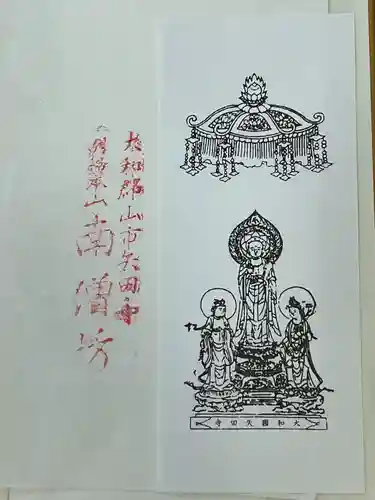 大和郡山市矢田寺
八明金剛山
南僧坊
大和國矢田寺